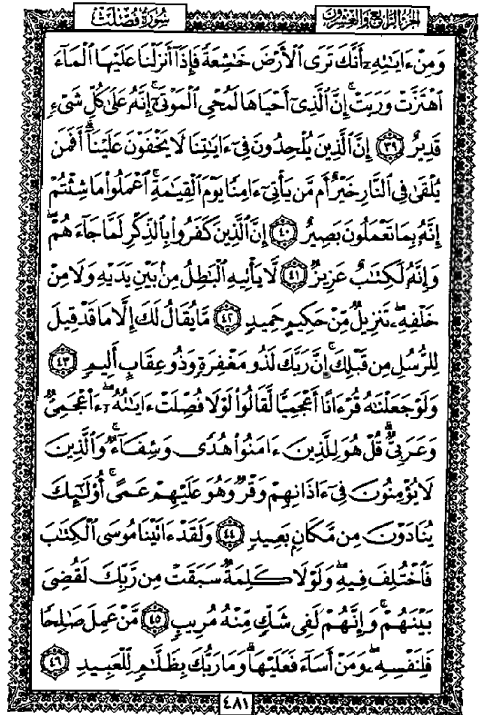 الجزء الرابع والعشرون
سورة فصلت
وَمِنْ ءَايَٰتِهِۦٓ أَنَّكَ تَرَى ٱلْأَرْضَ خَٰشِعَةً فَإِذَآ أَنزَلْنَا عَلَيْهَا ٱلْمَآءَ
ٱهْتَزَّتْ وَرَبَتْ ۚ إِنَّ ٱلَّذِىٓ أَحْيَاهَا لَمُحْىِ ٱلْمَوْتَىٰٓ ۚ إِنَّهُۥ عَلَىٰ كُلِّ شَىْءٍ
قَدِيرٌ ٣٩ إِنَّ ٱلَّذِينَ يُلْحِدُونَ فِىٓ ءَايَٰتِنَا لَا يَخْفَوْنَ عَلَيْنَآ ۗ أَفَمَن
يُلْقَىٰ فِى ٱلنَّارِ خَيْرٌ أَم مَّن يَأْتِىٓ ءَامِنًا يَوْمَ ٱلْقِيَٰمَةِ ۚ ٱعْمَلُوا۟ مَا شِئْتُمْ
إِنَّهُۥ بِمَا تَعْمَلُونَ بَصِيرٌ ٤٠ إِنَّ ٱلَّذِينَ كَفَرُوا۟ بِٱلذِّكْرِ لَمَّا جَآءَهُمْ ۖ
وَإِنَّهُۥ لَكِتَٰبٌ عَزِيزٌ ٤١ لَّا يَأْتِيهِ ٱلْبَٰطِلُ مِنۢ بَيْنِ يَدَيْهِ وَلَا مِنْ
خَلْفِهِۦ ۖ تَنزِيلٌ مِّنْ حَكِيمٍ حَمِيدٍ ٤٢ مَّا يُقَالُ لَكَ إِلَّا مَا قَدْ قِيلَ
لِلرُّسُلِ مِن قَبْلِكَ ۚ إِنَّ رَبَّكَ لَذُو مَغْفِرَةٍ وَذُو عِقَابٍ أَلِيمٍ ٤٣
وَلَوْ جَعَلْنَٰهُ قُرْءَانًا أَعْجَمِيًّا لَّقَالُوا۟ لَوْلَا فُصِّلَتْ ءَايَٰتُهُۥٓ ۖ ءَا۬عْجَمِىٌّ
وَعَرَبِىٌّ ۗ قُلْ هُوَ لِلَّذِينَ ءَامَنُوا۟ هُدًى وَشِفَآءٌ ۖ وَٱلَّذِينَ
لَا يُؤْمِنُونَ فِىٓ ءَاذَانِهِمْ وَقْرٌ وَهُوَ عَلَيْهِمْ عَمًى ۚ أُو۟لَٰٓئِكَ
يُنَادَوْنَ مِن مَّكَانٍۭ بَعِيدٍ ٤٤ وَلَقَدْ ءَاتَيْنَا مُوسَى ٱلْكِتَٰبَ
فَٱخْتُلِفَ فِيهِ ۗ وَلَوْلَا كَلِمَةٌ سَبَقَتْ مِن رَّبِّكَ لَقُضِىَ
بَيْنَهُمْ ۚ وَإِنَّهُمْ لَفِى شَكٍّ مِّنْهُ مُرِيبٍ ٤٥ مَّنْ عَمِلَ صَٰلِحًا
فَلِنَفْسِهِۦ ۖ وَمَنْ أَسَآءَ فَعَلَيْهَا ۗ وَمَا رَبُّكَ بِظَلَّٰمٍ لِّلْعَبِيدِ ٤٦
٤٨١